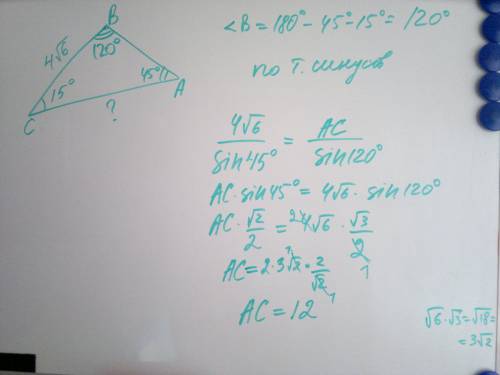 B
4√6
120°
45°
A
15°
C
?
∠B = 180° - 45° - 15° = 120°
по т. синусов
4√6/sin45° = AC/sin120°
AC · sin45° = 4√6 · sin120°
AC · √2/2 = 2 4√6 · √3/2 1
AC = 2 · 3√2 · 2/√2 1
AC = 12
√6 · √3 = √18 =
= 3√2